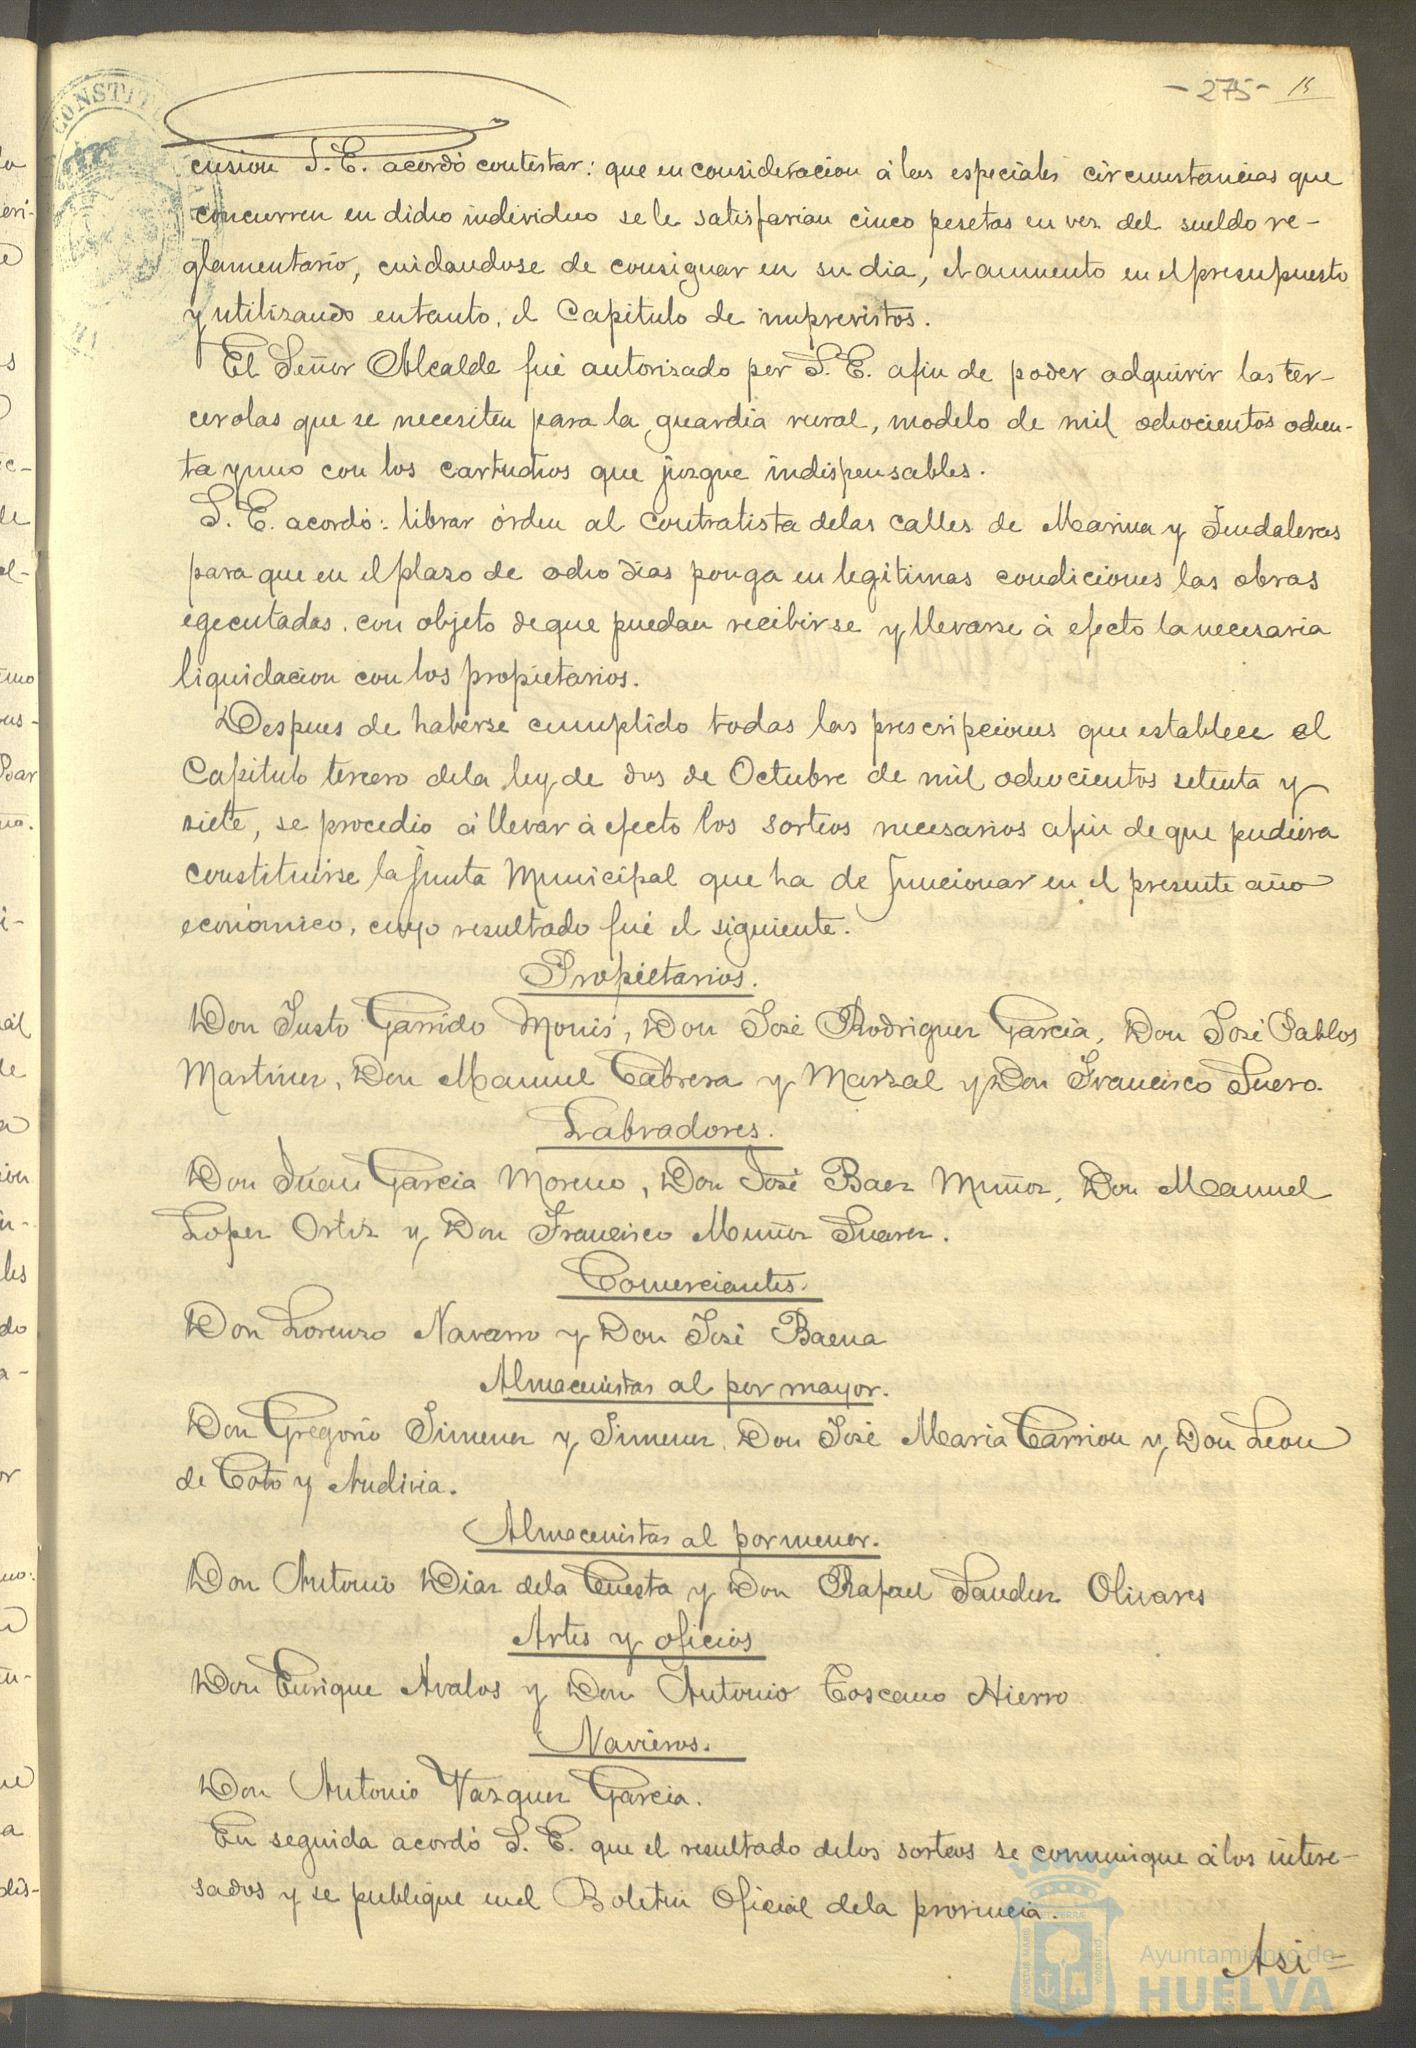 -275- 15
CONSTIT
cusion S. E. acordó contestar: que en consideracion á las especiales circunstancias que
concurren en dicho individuo se le satisfarian cinco pesetas en vez del sueldo re-
glamentario, cuidandose de consignar en su dia, el aumento en el presupuesto
y utilizando entanto, el Capitulo de imprevistos.
El Señor Alcalde fué autorizado por S. E. afin de poder adquirir las ter-
cerolas que se necesiten para la guardia rural, modelo de mil ochocientos ochen-
ta y uno con los cartuchos que juzgue indispensables.
S. E. acordó: librar órden al contratista delas calles de Marina y Fendaleras
para que en el plazo de ocho dias ponga en legitimas condiciones las obras
egecutadas, con objeto deque puedan recibirse y llevarse á efecto la necesaria
liquidacion con los propietarios.
Despues de haberse cumplido todas las prescripciones que establece el
Capitulo tercero dela ley de dos de Octubre de mil ochocientos setenta y
siete, se procedio á llevar á efecto los sorteos necesarios afin de que pudiera
constituirse la Junta Municipal que ha de funcionar en el presente año
económico, cuyo resultado fué el siguiente.
Propietarios.
Don Justo Garrido Monis, Don José Rodriguez Garcia, Don José Pablos
Martinez, Don Manuel Cabrera y Marzal y Don Francisco Suero.
Labradores.
Don Juan Garcia Moreno, Don José Baez Muñoz, Don Manuel
Lopez Ortiz y Don Francisco Muñoz Suarez.
Comerciantes.
Don Lorenzo Navarro y Don José Baena
Almacenistas al por mayor.
Don Gregorio Jimenez y Jimenez, Don José Maria Carrion y Don Leon
de Coto y Andivia.
Almacenistas al pormenor.
Don Antonio Diaz dela Cuesta y Don Rafael Sanchez Olivares
Artes y oficios
Don Enrique Avalos y Don Antonio Toscano Hierro
Navieros.
Don Antonio Vazquez Garcia.
En seguida acordó S. E. que el resultado delos sorteos se comunique á los intere-
sados y se publique enel Boletin Oficial dela provincia.
Asi=
Ayuntamiento de
HUELVA